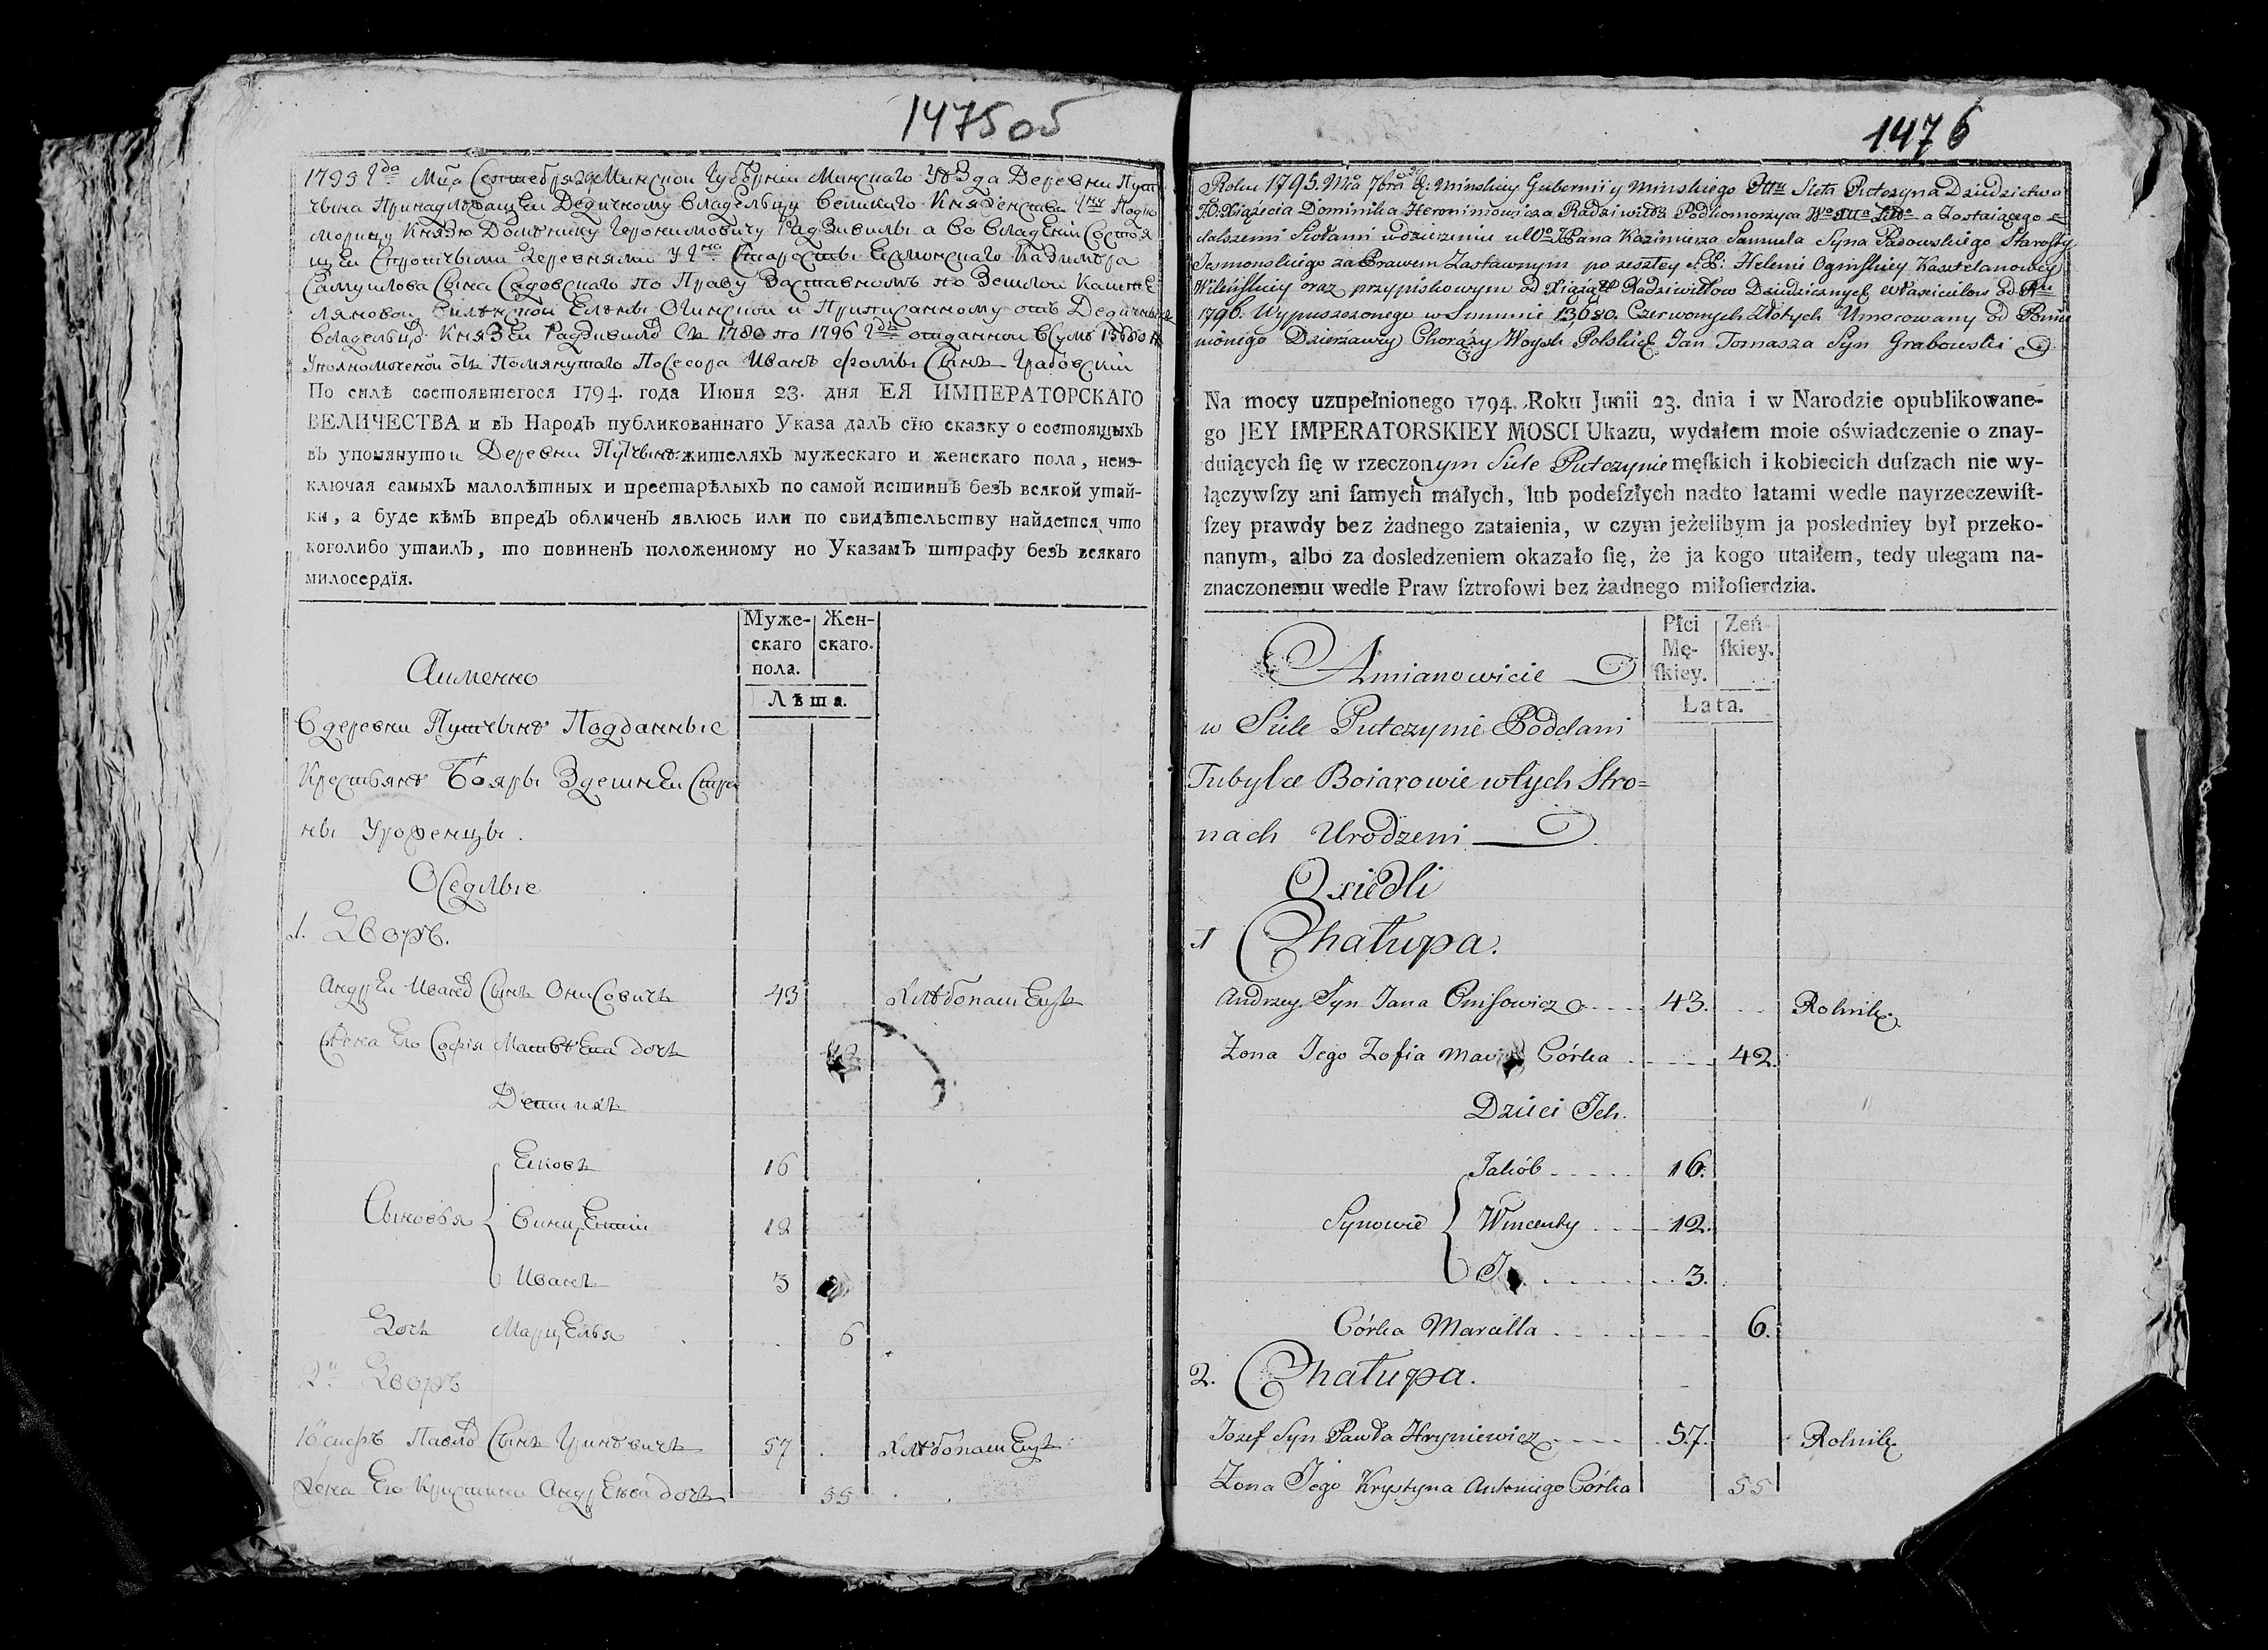 1475 об
1795 Гда Мца Сентебря Минской Губерніи Минскаго Уезда Деревни Пут
чына Принадлѣжащеи Дедичному владельцу великого Княженства
морицу Князю Доменику Геронимовичу Радзивилы а во владеніи Состоя
щеи Спротчыми деревнями У Старосты Есмонского Казимера
Самуилова Сына Садовского по Праву Заставномъ по Зешлои Каште
ляновои виленской Елены Огинской и Приписанному отъ Дедичныхъ
владельцовъ Князеи Радзивиловъ Съ 1780 по 1796 отданной в Суме 13680
Уполномоченой отъ Помянутаго Посесора Иванъ Фомы Сынъ Грабовскіи
По силѣ состоявшегося 1794. года Июня 23. дня ЕЯ ИМПЕРАТОРСКАГО
ВЕЛИЧЕСТВА и въ Народъ публикованнаго Указа далъ сїю сказку о состоящихъ
въ упомянутои Деревни Путчынѣ жителяхъ мужескаго и женскаго пола, неиз-
ключая самыхъ малолѣтныхъ и престарѣлыхъ по самой истиннѣ безъ всякой утай-
ки, а буде кѣмъ впредь обличенъ явлюсь или по свидѣтельству найдется что
коголибо утаилъ, то повиненъ положенному по Указамъ штрафу безъ всякаго
милосердїя.
Муже-
скаго
пола.
Жен-
скаго.
Лѣта.
Аименно
В деревни Путчынѣ Подданные
Крестьяне Бояры Здешнеи Стро
ны Уроженцы.
Оседлые
1. Дворъ.
Андреи Ивановъ Сынъ Онисовичъ 43 Хлѣбопашецъ
Жена Его Софія Матвеева дочь 42
Дети ихъ
Сыновья
Яковъ 16
Винцентіи 12
Иванъ 3
Дочь Марцелья 6
2й Дворъ
Іосифъ Павловъ Сынъ Гриневичъ 57 Хлѣбопашецъ
Жена Его Кристина Андреева дочь 55
1476
Roku 1795. Mca 7bra Minskiey Gubernii y Minskiego Pttu Sieła Putczyna Dziedzictwa
JO. Xiążęcia Dominika Heronimowicza Radziwiłła Podkomorzyca a Zostaiącego z
dalszemi Siołami w dzierzeniu Pana Kazimierza Samuela Syna Sadowskiego Starosty
Jesmonskiego za Prawem Zastawnym po zeszłey Helenie Ogińskiey Kasztelanowey
Wileńskiey oraz przypiskowym od Xiążąt Radziwiłłow Dziedzicznych właścicielow od
1796. Wypuszczonego w Summie 13,680. Czerwonych Złotych Umocowany od Pomie
nionego Dzierżawcy Chorąży Woysk Polskich Jan Tomasza Syn Grabowski
Na mocy uzupełnionego 1794. Roku Junii 23. dnia i w Narodzie opublikowane-
go JEY IMPERATORSKIEY MOSCI Ukazu, wydałem moie oświadczenie o znay-
duiących ſię w rzeczonym Siele Putczynie męſkich i kobiecich duſzach nie wy-
łączywſzy ani ſamych małych, lub podeſzłych nadto latami wedle nayrzeczewiſt-
ſzey prawdy bez żadnego zataienia, w czym jeżelibym ja posledniey był przeko-
nanym, albo za dosledzeniem okazało ſię, że ja kogo utaiłem, tedy ulegam na-
znaczonemu wedle Praw ſztrofowi bez żadnego miłoſierdzia.
Płci
Mę-
ſkiey.
Żeń-
ſkiey.
Lata.
Amianowicie
w Siele Putczynie Poddani
Tubylce Boiarowie w tych Stro=
nach Urodzeni
Osiedli
1 Chałupa.
Andrzey Syn Jana Onisowicz 43. Rolnik.
Żona Jego Zofia Córka 42.
Dzieci Ich.
Synowie
Jakób 16.
Wincenty 12.
3.
Córka Marcella 6.
2. Chałupa.
Józef Syn Pawła Hryniewicz 57. Rolnik
Żona Jego Krystyna Antoniego Córka 55